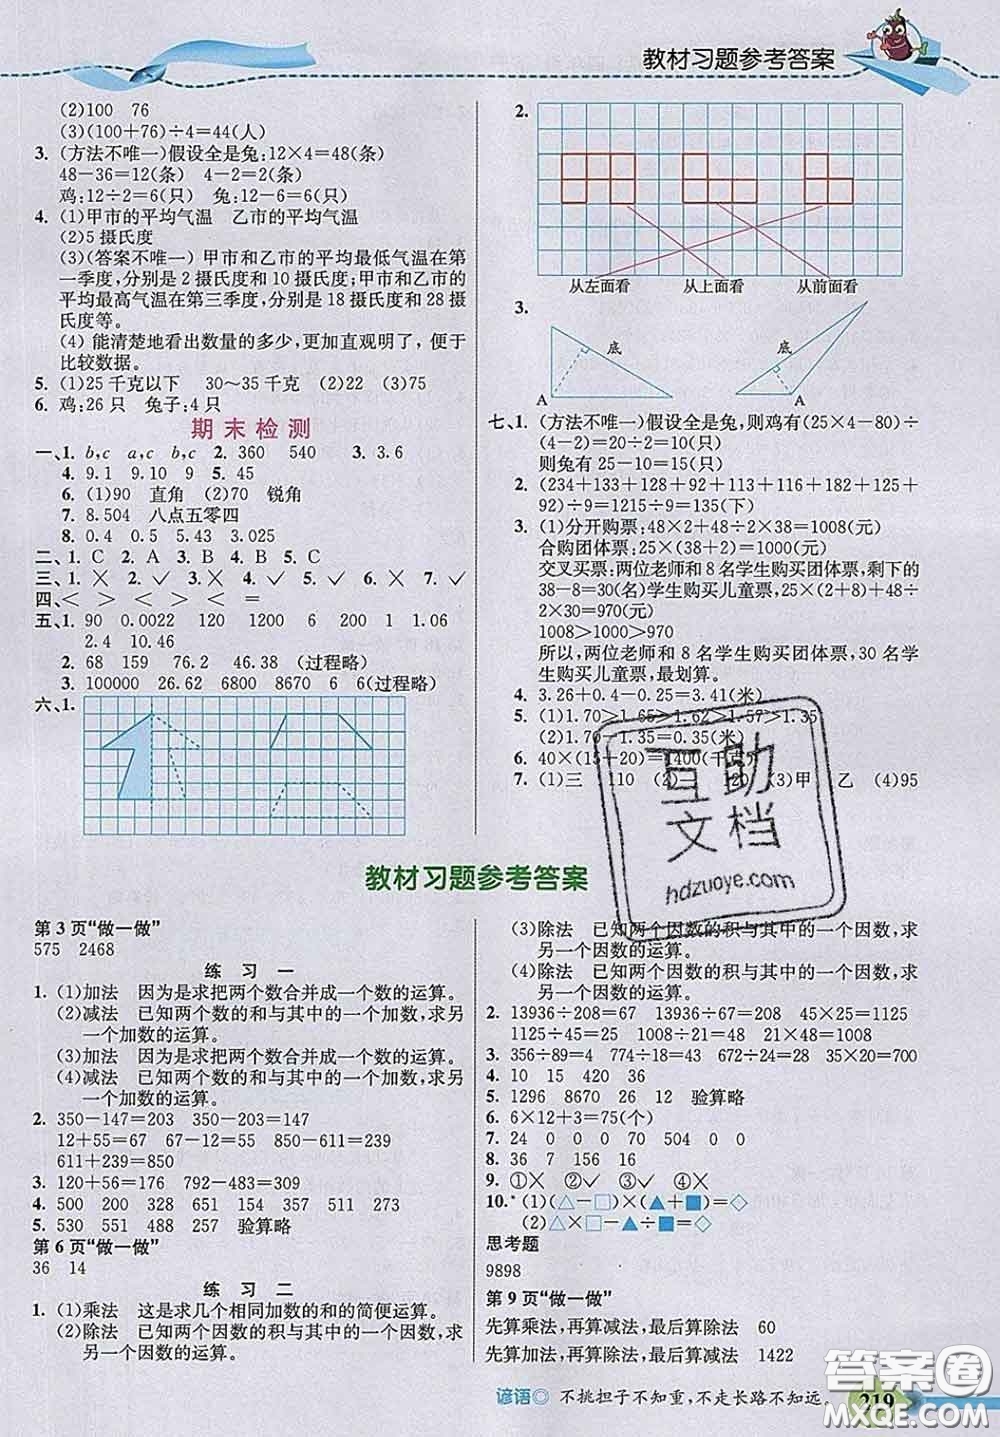 教材习题参考答案
(2)100　76
(3)(100+76)÷4=44(人)
3. (方法不唯一)假设全是兔:12×4=48(条)
48-36=12(条)　4-2=2(条)
鸡:12÷2=6(只)　兔:12-6=6(只)
4. (1)甲市的平均气温　乙市的平均气温
(2)5 摄氏度
(3)(答案不唯一) 甲市和乙市的平均最低气温在第
一季度,分别是 2 摄氏度和 10 摄氏度;甲市和乙市
的平均最高气温在第三季度,分别是 18 摄氏度和 28 摄
氏度等。
(4) 能清楚地看出数量的多少,更加直观明了,便于
比较数据。
5. (1)25 千克以下　30～35 千克　(2)22　(3)75
6. 鸡:26 只　兔子:4 只
期末检测
一、1. b,c　a,c　b,c　2. 360　540　3. 3.6
4. 9.1　9.10　9　5. 45
6. (1)90　直角　(2)70　锐角
7. 8.504　八点五零四
8. 0.4　0.5　5.43　3.025
二、1. C　2. A　3. B　4. B　5. C
三、1. ✕　2. ✓　3. ✕　4. ✓　5. ✓　6. ✕　7. ✓
四、<　>　<　>　<　=
五、1. 90　0.0022　120　1200　6　2　1　1.06
2.4　10.46
2. 68　159　76.2　46.38　(过程略)
3. 100000　26.62　6800　8670　6　6(过程略)
六、1.
2.
从左面看　从上面看　从前面看
3.
底　底
A　A
七、1. (方法不唯一)假设全是兔,则鸡有(25×4-80)÷
(4-2)=20÷2=10(只)
则兔有 25-10=15(只)
2. (234+133+128+92+113+182+116+125+
92)÷9=1215÷9=135(下)
3. (1)分开购票:48×2+2×38=1008(元)
合购团体票:25×(38+2)=1000(元)
交叉买票:两位老师和 8 名学生购买团体票,剩下的
38-8=30(名)学生购买儿童票,25×(2+8)+24×
30=970(元)
1008>1000>970
所以,两位老师和 8 名学生购买团体票,30 名学生
购买儿童票,最划算。
4. 3.26+0.4-0.25=3.41(米)
5. (1)1.70>1.65>1.62>1.57>1.35
(2)1.70-1.35=0.35(米)
6. 40×(15+20)=1400(千克)
7. (1)三　110　(2)　120　(3)甲　乙　(4)95
互助
文档
hdzuoye.com
教材习题参考答案
第 3 页“做一做”
575　2468
练 习 一
1. (1)加法　因为是求把两个数合并成一个数的运算。
(2)减法　已知两个数的和与其中的一个加数,求另
一个加数的运算。
(3)加法　因为是求把两个数合并成一个数的运算。
(4)减法　已知两个数的和与其中的一个加数,求另
一个加数的运算。
2. 350-147=203　350-203=147
12+55=67　67-12=55　850-611=239
611+239=850
3. 120+56=176　792-483=309
4. 500　200　328　651　154　357　511　273
5. 530　551　488　257　验算略
第 6 页“做一做”
36　14
练 习 二
1. (1)乘法　这是求几个相同加数的和的简便运算。
(2)除法　已知两个因数的积与其中的一个因数,求
另一个因数的运算。
(3)除法　已知两个因数的积与其中的一个因数,求
另一个因数的运算。
(4)除法　已知两个因数的积与其中的一个因数,求
另一个因数的运算。
2. 13936÷208=67　13936÷67=208　45×25=1125
1125÷45=25　1008÷21=48　21×48=1008
3. 356÷89=4　774÷18=43　672÷24=28　35×20=700
4. 10　15　420　36
5. 1296　8670　26　36　验算略
6. 6×12+3=75(个)
7. 24　0　0　0　70　504　0　0
8. 36　7　156　16
9. ①✕　②✓　③✓　④✕
10.* (1)(△-□)×(▲+■)=◇
(2)△×□-▲÷■=◇
思考题
9898
第 9 页“做一做”
先算乘法,再算减法,最后算除法　60
先算加法,再算除法,最后算减法　1422
谚语◎　不挑担子不知重,不走长路不知远。
219
答案圈
MXQE.COM